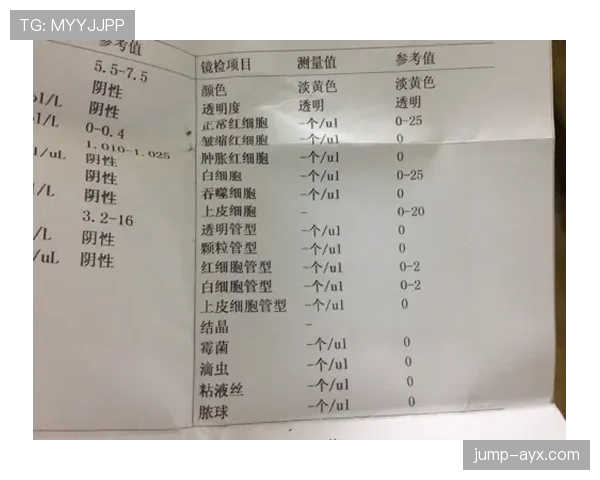 TG: MYYJJPP
参考值
5.5-7.5
阴性
/L 阴性
/L 0-0.4
1.010-1.025
/uL 阴性
阴性
/L 阴性
3.2-16
/L 阴性
/uL 阴性
镜检项目 测量值 参考值
颜色 淡黄色 淡黄色
透明度 透明 透明
正常红细胞 -个/ul 0-25
皱缩红细胞 -个/ul 0
肿胀红细胞 -个/ul 0
白细胞 -个/ul 0-25
吞噬细胞 -个/ul 0
上皮细胞 - 0-20
透明管型 -个/ul 0
颗粒管型 -个/ul 0
红细胞管型 -个/ul 0-2
白细胞管型 -个/ul 0-2
上皮细胞管型 -个/ul 0
结晶 -
霉菌 -个/ul 0
滴虫 -个/ul 0
粘液丝 -个/ul 0
脓球 -个/ul 0
jump-ayx.com